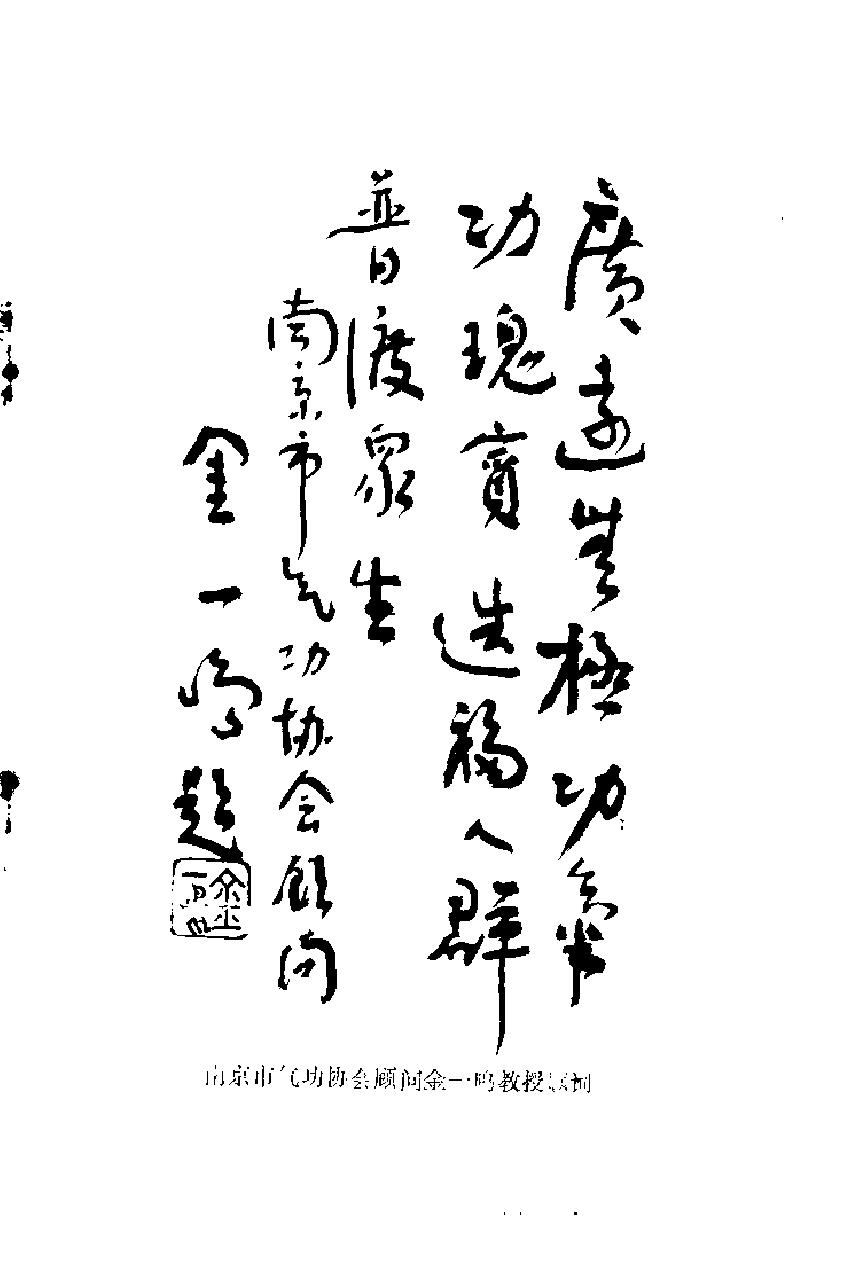 廣遠無極功氣
功瑰寳造福人群
普渡眾生
南京市气功协会顾问
金一鸣题
南京市气功协会顾问金一鸣教授题词